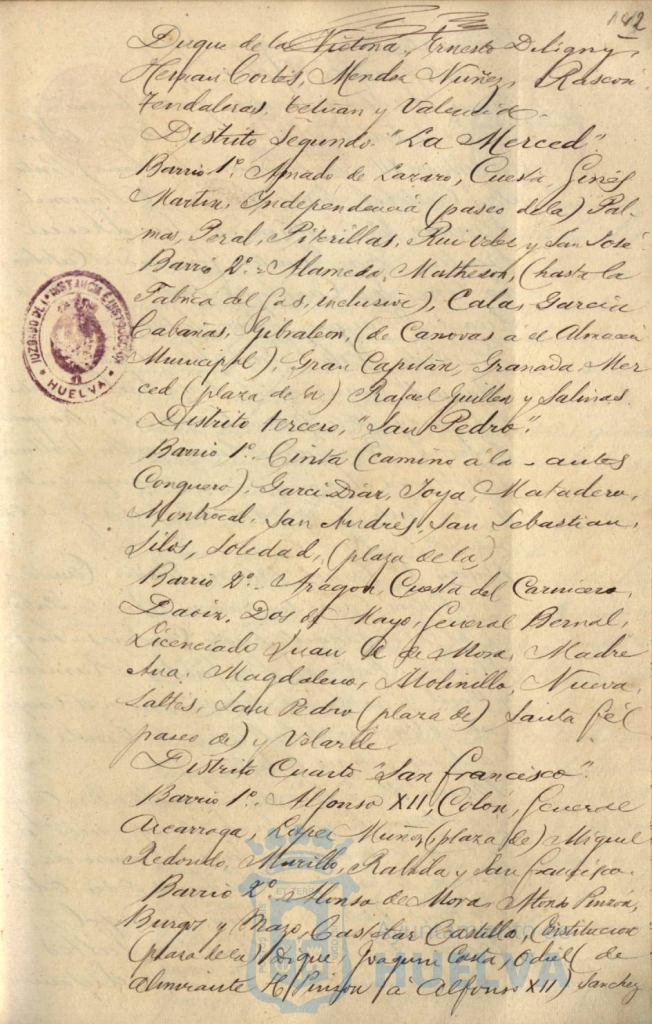 142
Duque de la Victoria, Ernesto Deligny,
Hernan Cortés, Mendez Nuñez, Rascon
Tendaleras, Tetuan y Valencia.
Distrito Segundo. "La Merced".
Barrio 1º. Amado de Lázaro, Cuesta, Ginés
Martin, Independencia (paseo de la) Pal-
mas, Peral, Piterillas, Rui Velez y San José
Barrio 2º. Alameda, Matheson, (hasta la
Fabrica del Gas, inclusive), Cala, Garcia
Cabañas, Gibraleon, (de Canovas á el Almacén
Municipal), Gran Capitán, Granada, Mer
ced (plaza de la) Rafael Guillen y Salinas.
Distrito tercero, "San Pedro".
Barrio 1º. Cinta (camino á la - antes
Conquero), Garci-Diaz, Joya, Matadero,
Montrocal, San Andrés, San Sebastian,
Silos, Soledad, (plaza de la)
Barrio 2º. Aragon, Cuesta del Carnicero,
Daoiz, Dos de Mayo, General Bernal,
Licenciado Juan A. de Mora, Madre
Ana, Magdalena, Molinillo, Nueva,
Saltés, San Pedro (plaza de) Santa Fé (
paseo de) y Velarde
Distrito Cuarto "San Francisco".
Barrio 1º. Alfonso XII, Colón, General
Azcarraga, Lopez Muñoz (plaza de) Miguel
Redondo, Murillo, Rabida y San Francisco.
Barrio 2º. Alonso de Mora, Alonso Pinzón,
Burgos y Mazo, Castelar, Castillo, Constitucion
(plaza de la) Dique, Joaquin Costa, Odiel (de
almirante H Pinzon á Alfonso XII) Sanchez
JUZGADO DE 1ª INSTANCIA É INSTRUCCION
HUELVA
HUELVA